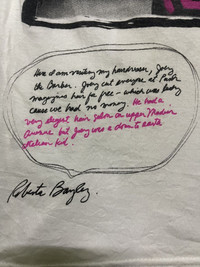 Here I am visiting my hairdresser, Joey
the Barber. Joey cut everyone at Punk
magazine hair for free - which was lucky
cause we had no money. He had a
very elegant hair salon on upper Madison
Avenue but Joey was a down to earth
Italian kid.
Roberta Bayley.